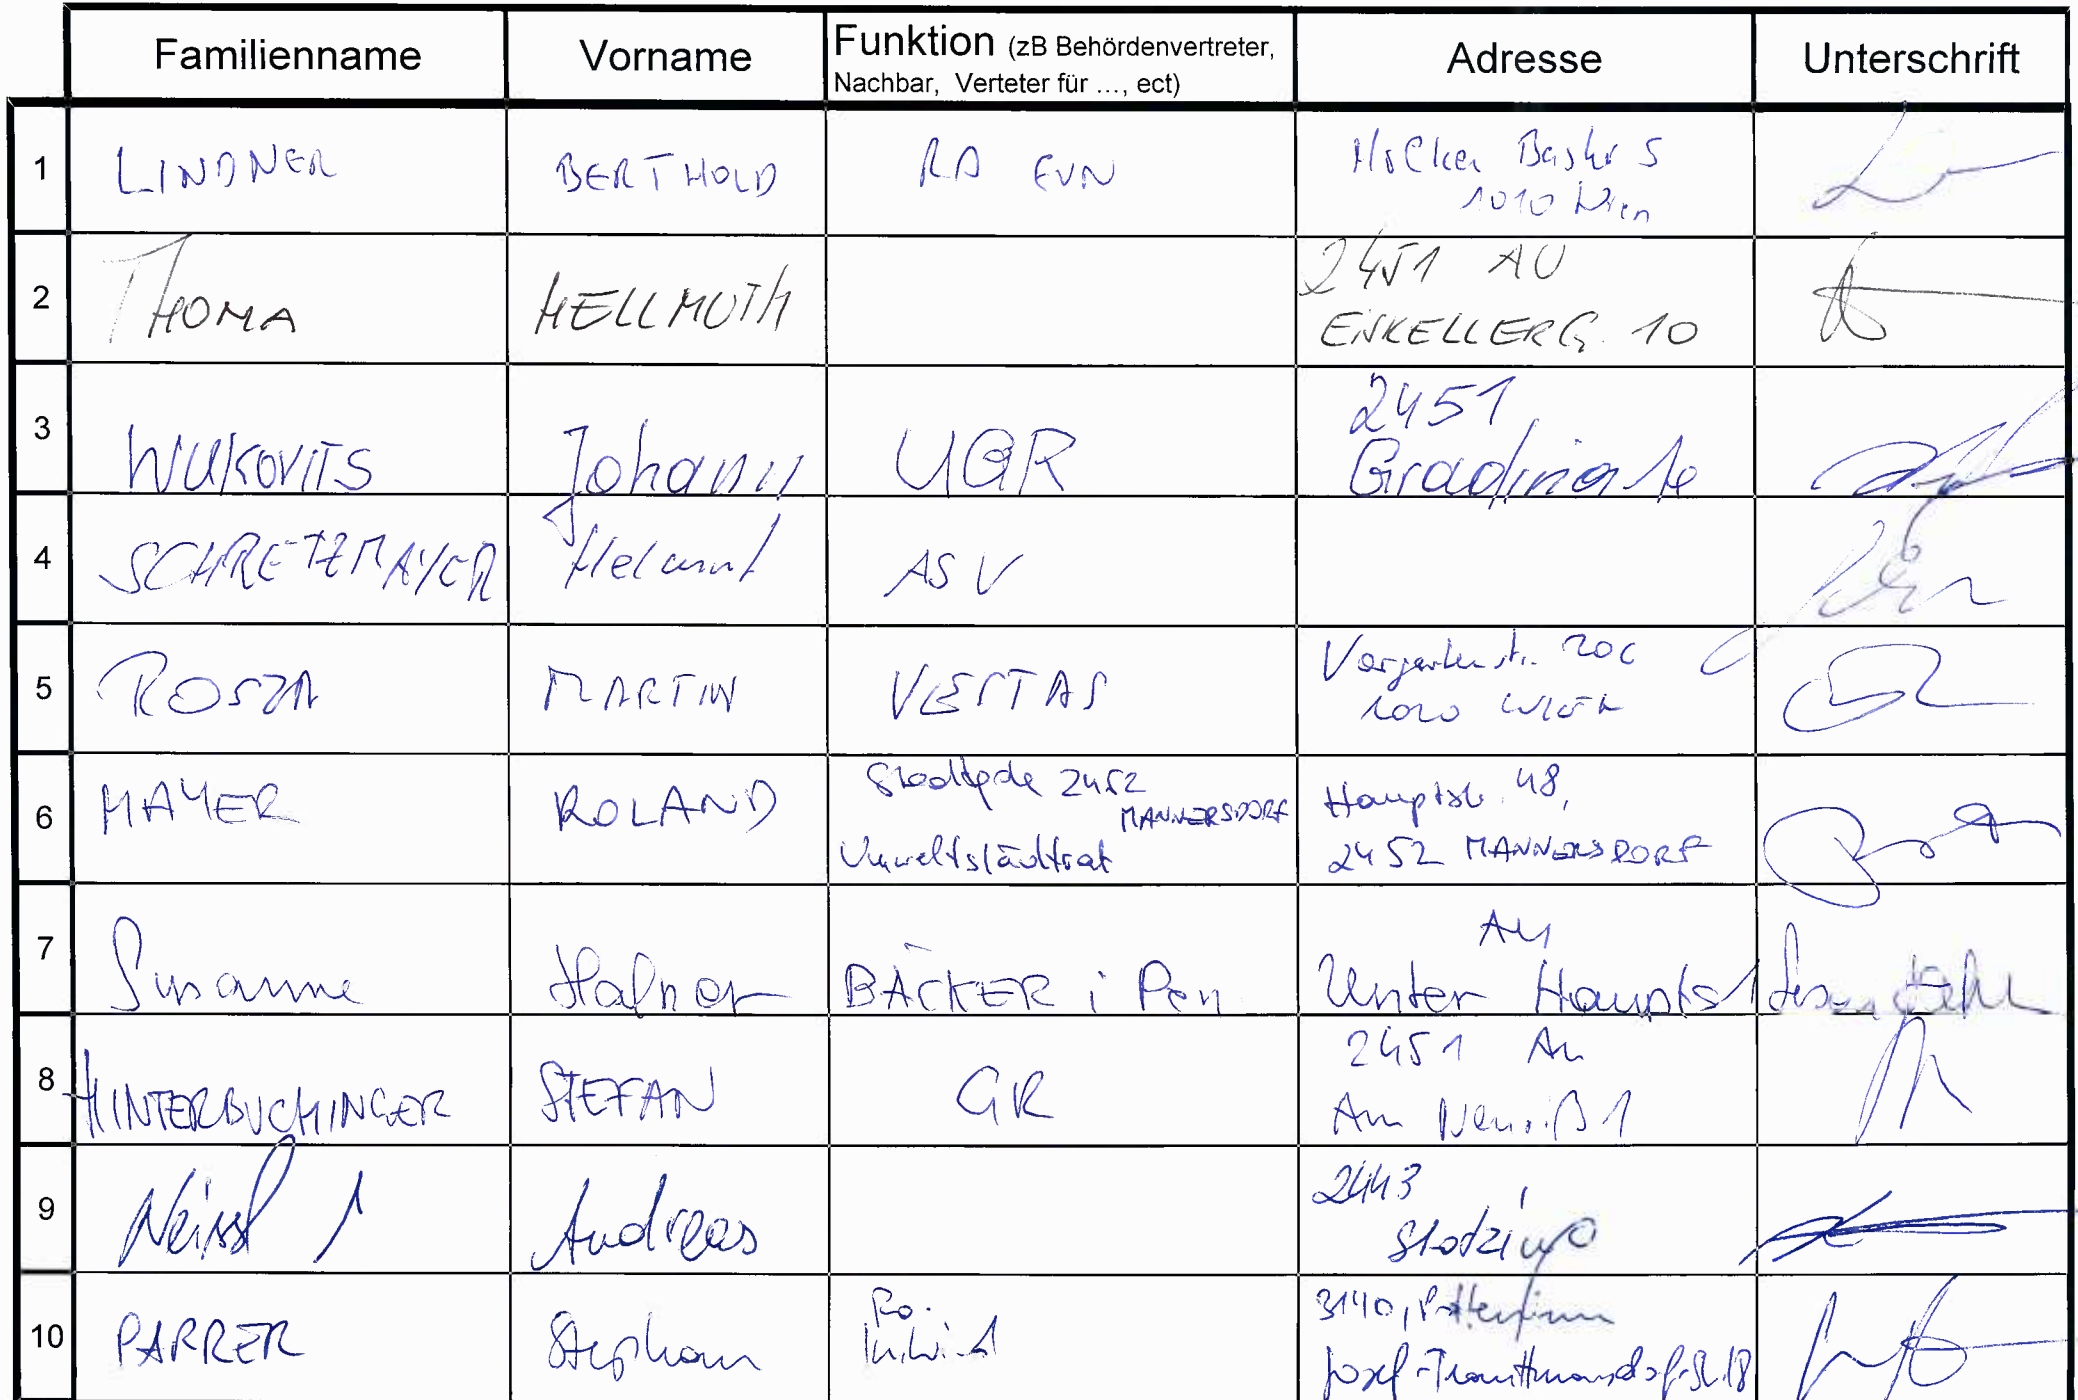 Familienname Vorname Funktion (zB Behördenvertreter, Nachbar, Verteter für ..., ect) Adresse Unterschrift
1 LINDNER BERTHOLD RA EVN 5
1010 Wien
2 THOMA HELLMUTH 2451 AU
EISKELLERG. 10
3 WUKOVITS Johann UGR 2451
4 SCHRETZMAYER Helmut ASV
5 ROSZA MARTIN Vorgartenstr. 206
1020 WIEN
6 MAYER ROLAND Stadtgde 2452 MANNERSDORF
Umweltstadtrat
Hauptstr. 48,
2452 MANNERSDORF
7 Susanne Hafner BÄCKER i Pen AU
Unter Haupts
8 HINTERBUCHINGER STEFAN GR 2451 Au
Am Neuriß 1
9 Andreas 2443
10 PARRER Stephan 3140, Pottenbrunn
Josef-Trauttmansdorf-Str. 18